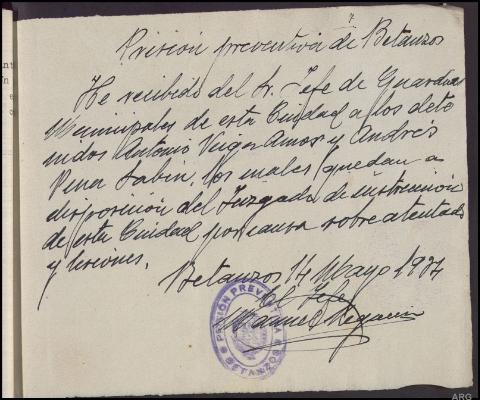 Prisión preventiva de Betanzos
He recibido del Sr. Jefe de Guardias
Municipales de esta Ciudad a los dete
nidos Antonio Veiga Amor y Andrés
Pena Sabin, los cuales quedan a
disposición del Juzgado de instrucción
de esta Ciudad por causa sobre atentado
y lesiones.
Betanzos 14 Mayo 1934
El Jefe
Manuel
PRISIÓN PREVENTIVA
BETANZOS
ARG